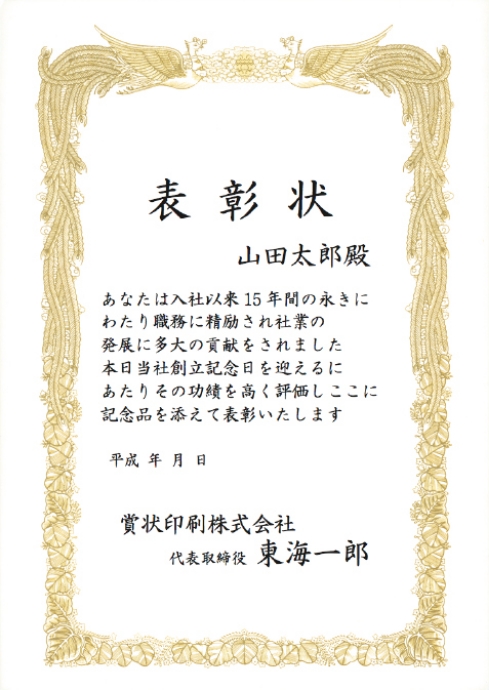 表彰状
山田太郎殿
あなたは入社以来15年間の永きに
わたり職務に精励され社業の
発展に多大の貢献をされました
本日当社創立記念日を迎えるに
あたりその功績を高く評価しここに
記念品を添えて表彰いたします
平成 年 月 日
賞状印刷株式会社
代表取締役 東海一郎